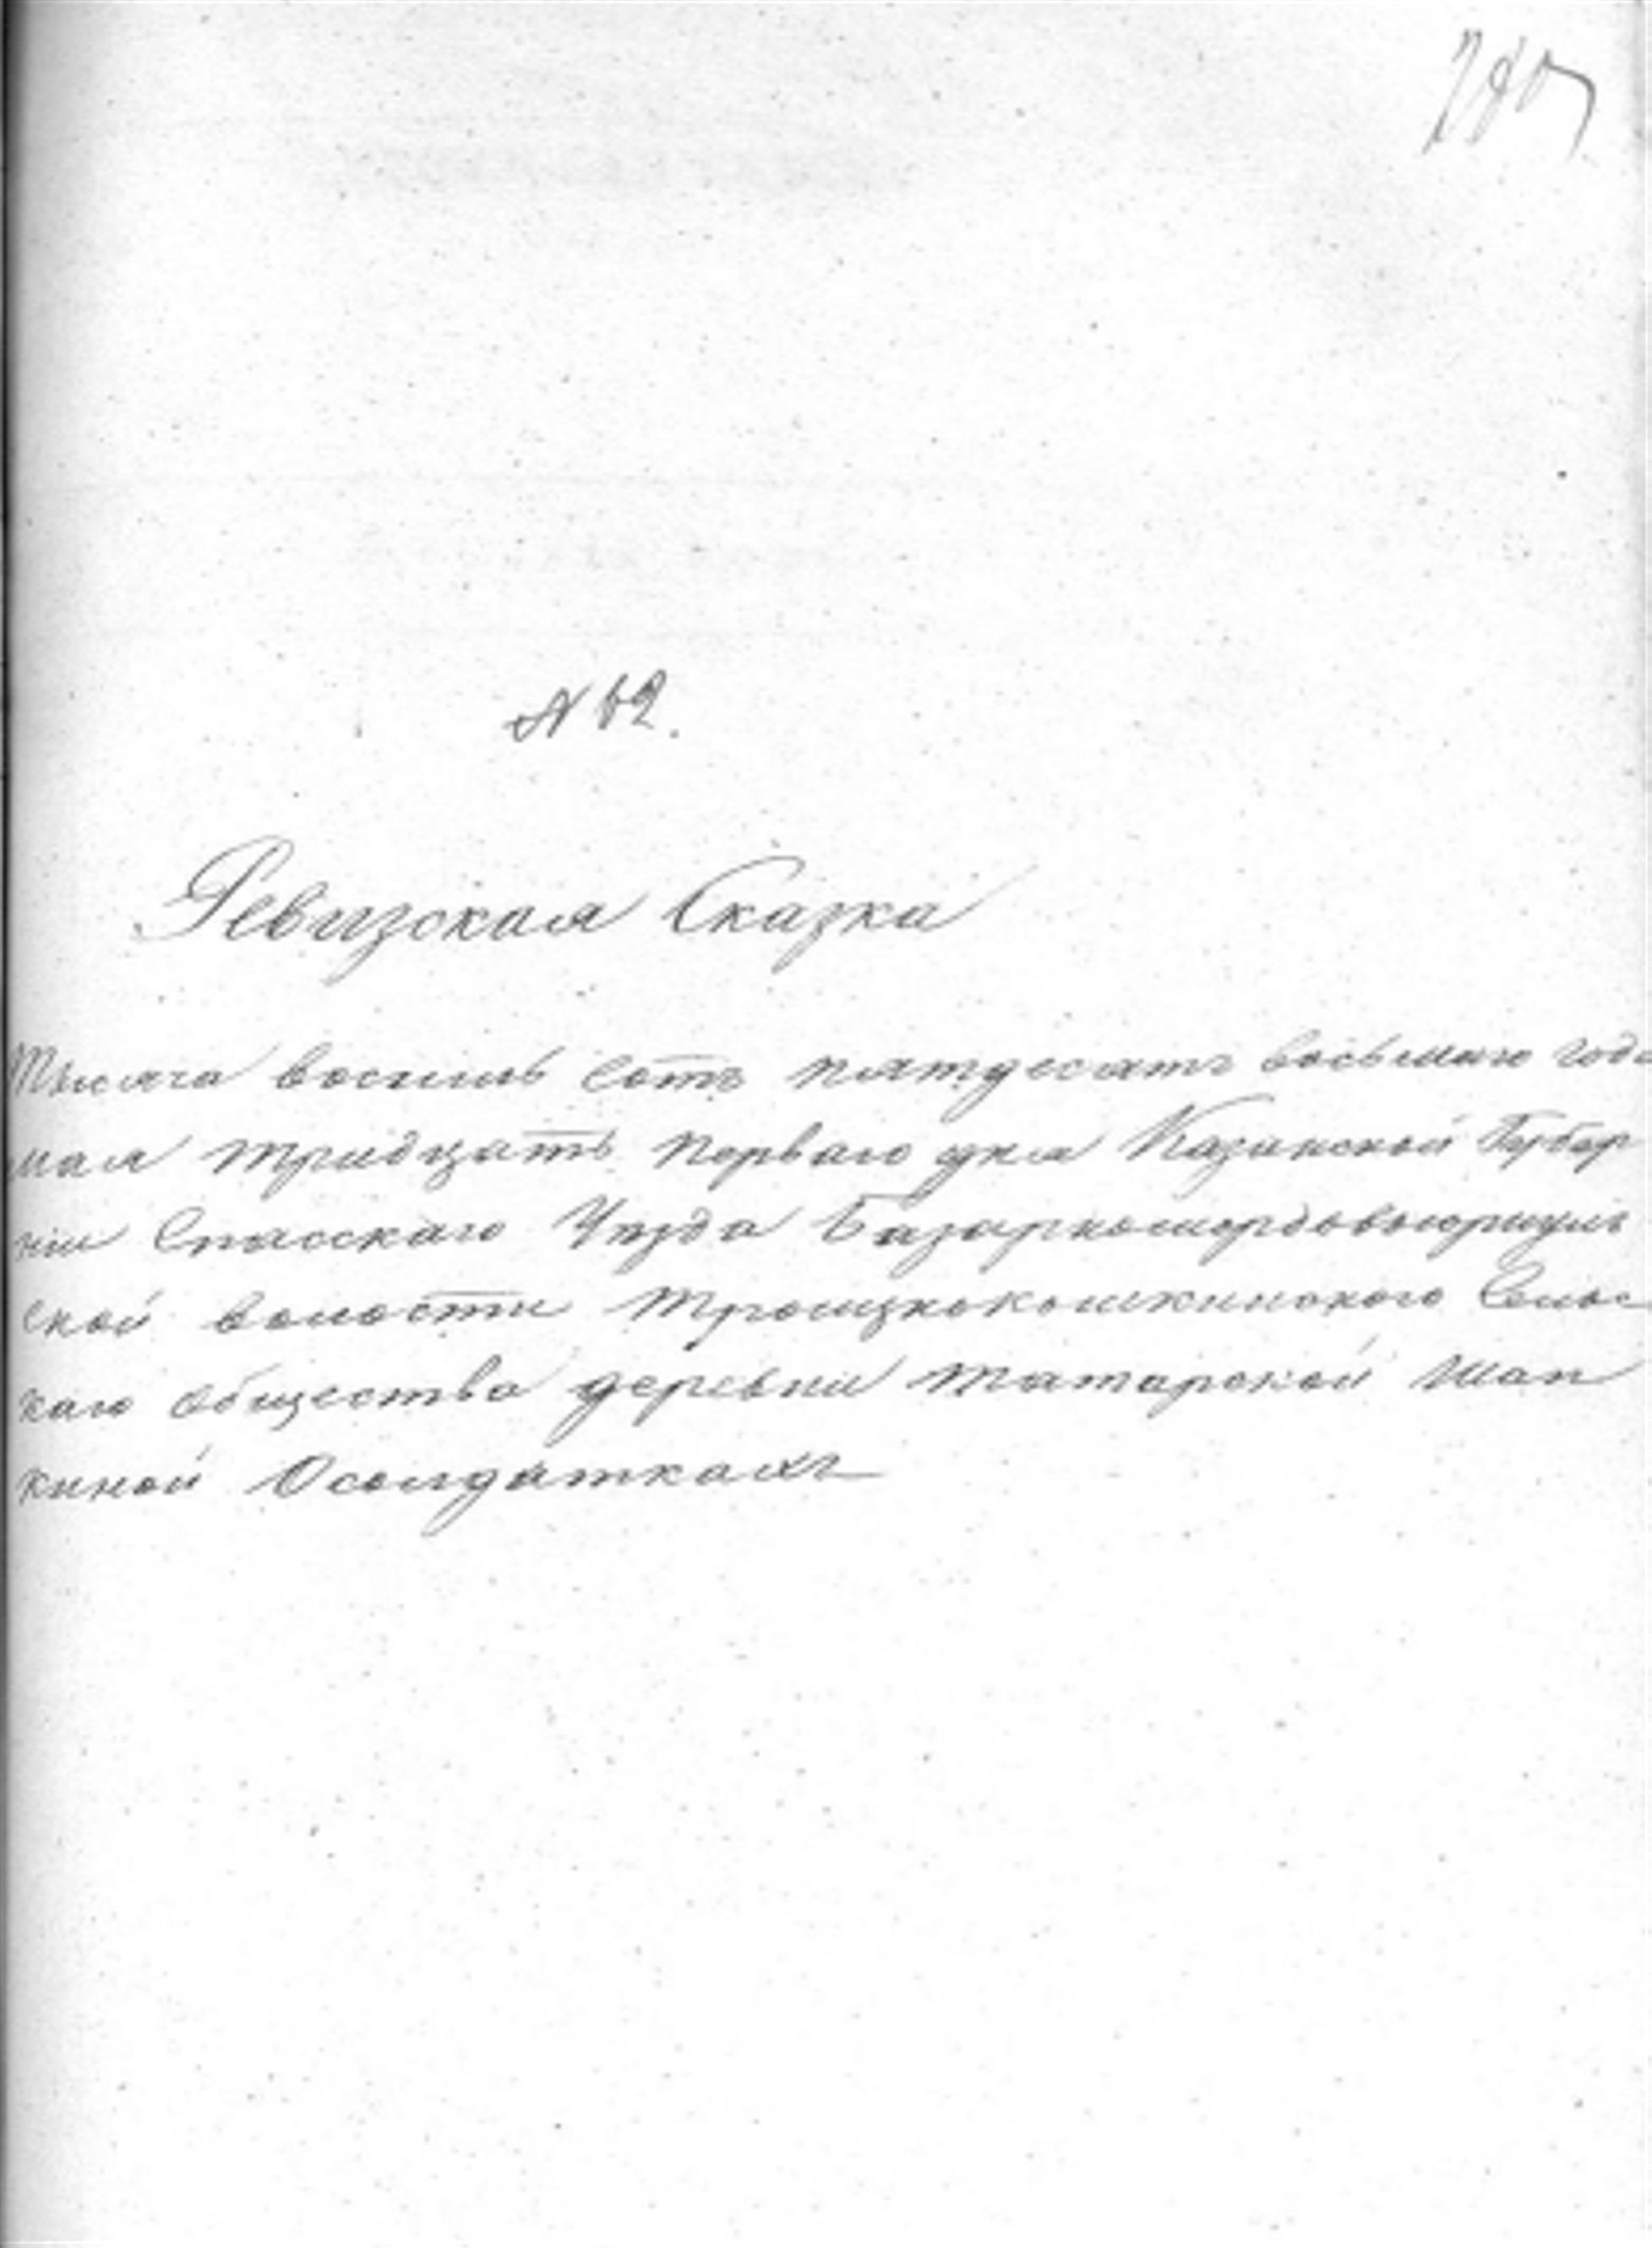 280
N 62.
Ревизская Сказка
Тысяча восемь сотъ пятдесятъ восьмаго года
мая тридцать перваго дня Казанской Губер
ніи Спасскаго Уѣзда
ской волости Троицкокошкинскаго Сельс
каго общества деревни Татарской Шап
киной О солдаткахъ